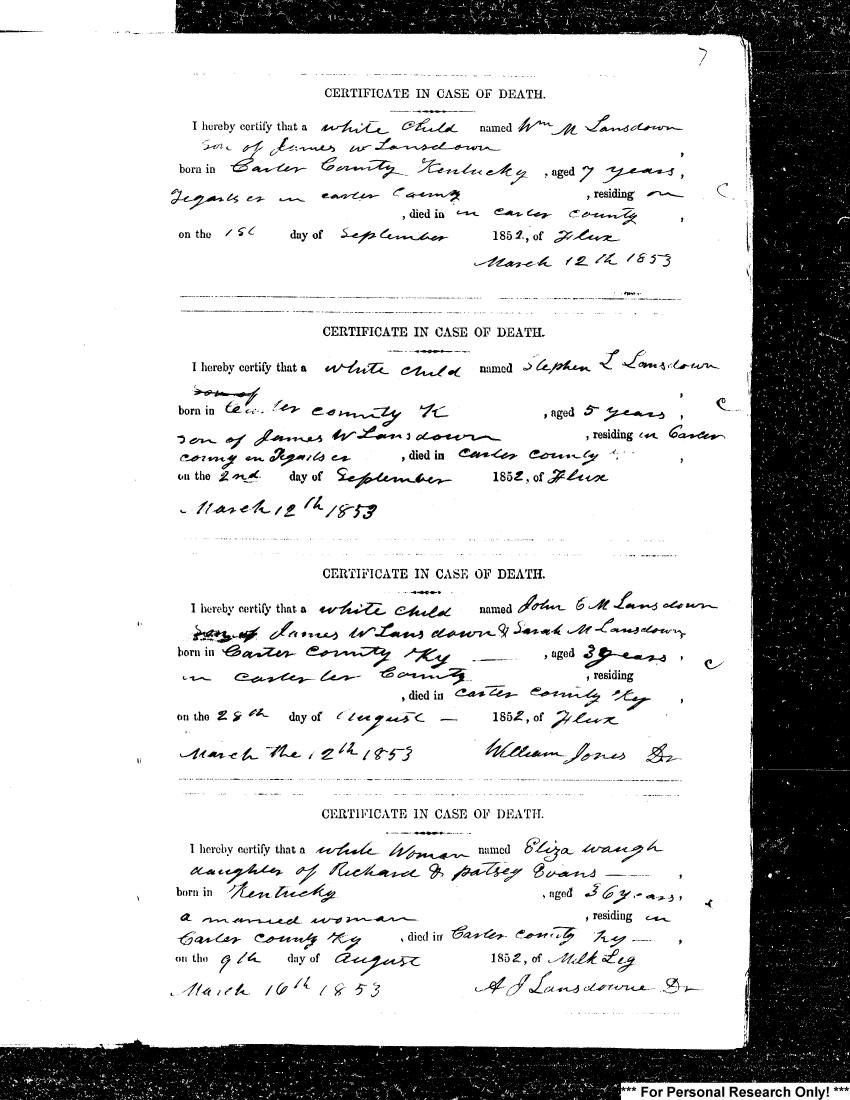 7
CERTIFICATE IN CASE OF DEATH.
I hereby certify that a white Child named Wm M Lansdown
son of James W Lansdown ,
born in Carter County Kentucky , aged 7 years,
in carter County , residing on
, died in in carter county ,
on the 1st day of September 1852, of Flux
March 12th 1853
CERTIFICATE IN CASE OF DEATH.
I hereby certify that a white child named Stephen L Lansdown
son of ,
born in county K , aged 5 years , C
son of James W Lansdown , residing in Carter
county on , died in Carter County ,
on the 2nd day of September 1852, of Flux
March 12th 1853
CERTIFICATE IN CASE OF DEATH.
I hereby certify that a white child named John C M Lansdown
son of James W Lansdown & Sarah M Lansdown
born in Carter County Ky , aged 3 years , C
in County , residing
, died in Carter County Ky ,
on the 28th day of August 1852, of Flux
March the 12th 1853 William Jones Dr
CERTIFICATE IN CASE OF DEATH.
I hereby certify that a white Woman named Eliza Waugh
daughter of Richard & Patsey Evans ,
born in Kentucky , aged 36 years,
a married woman , residing in
Carter County Ky , died in Carter County Ky ,
on the 9th day of August 1852, of Milk Leg
March 16th 1853 A J Lansdowne Dr
*** For Personal Research Only! ***